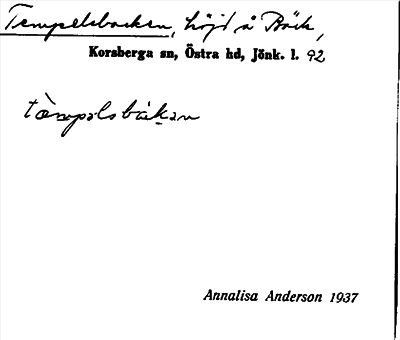 Tempelsbacken, höjd å Bäck,
Korsberga sn, Östra hd, Jönk. l. 92
tämpəlsbakən
Annalisa Anderson 1937